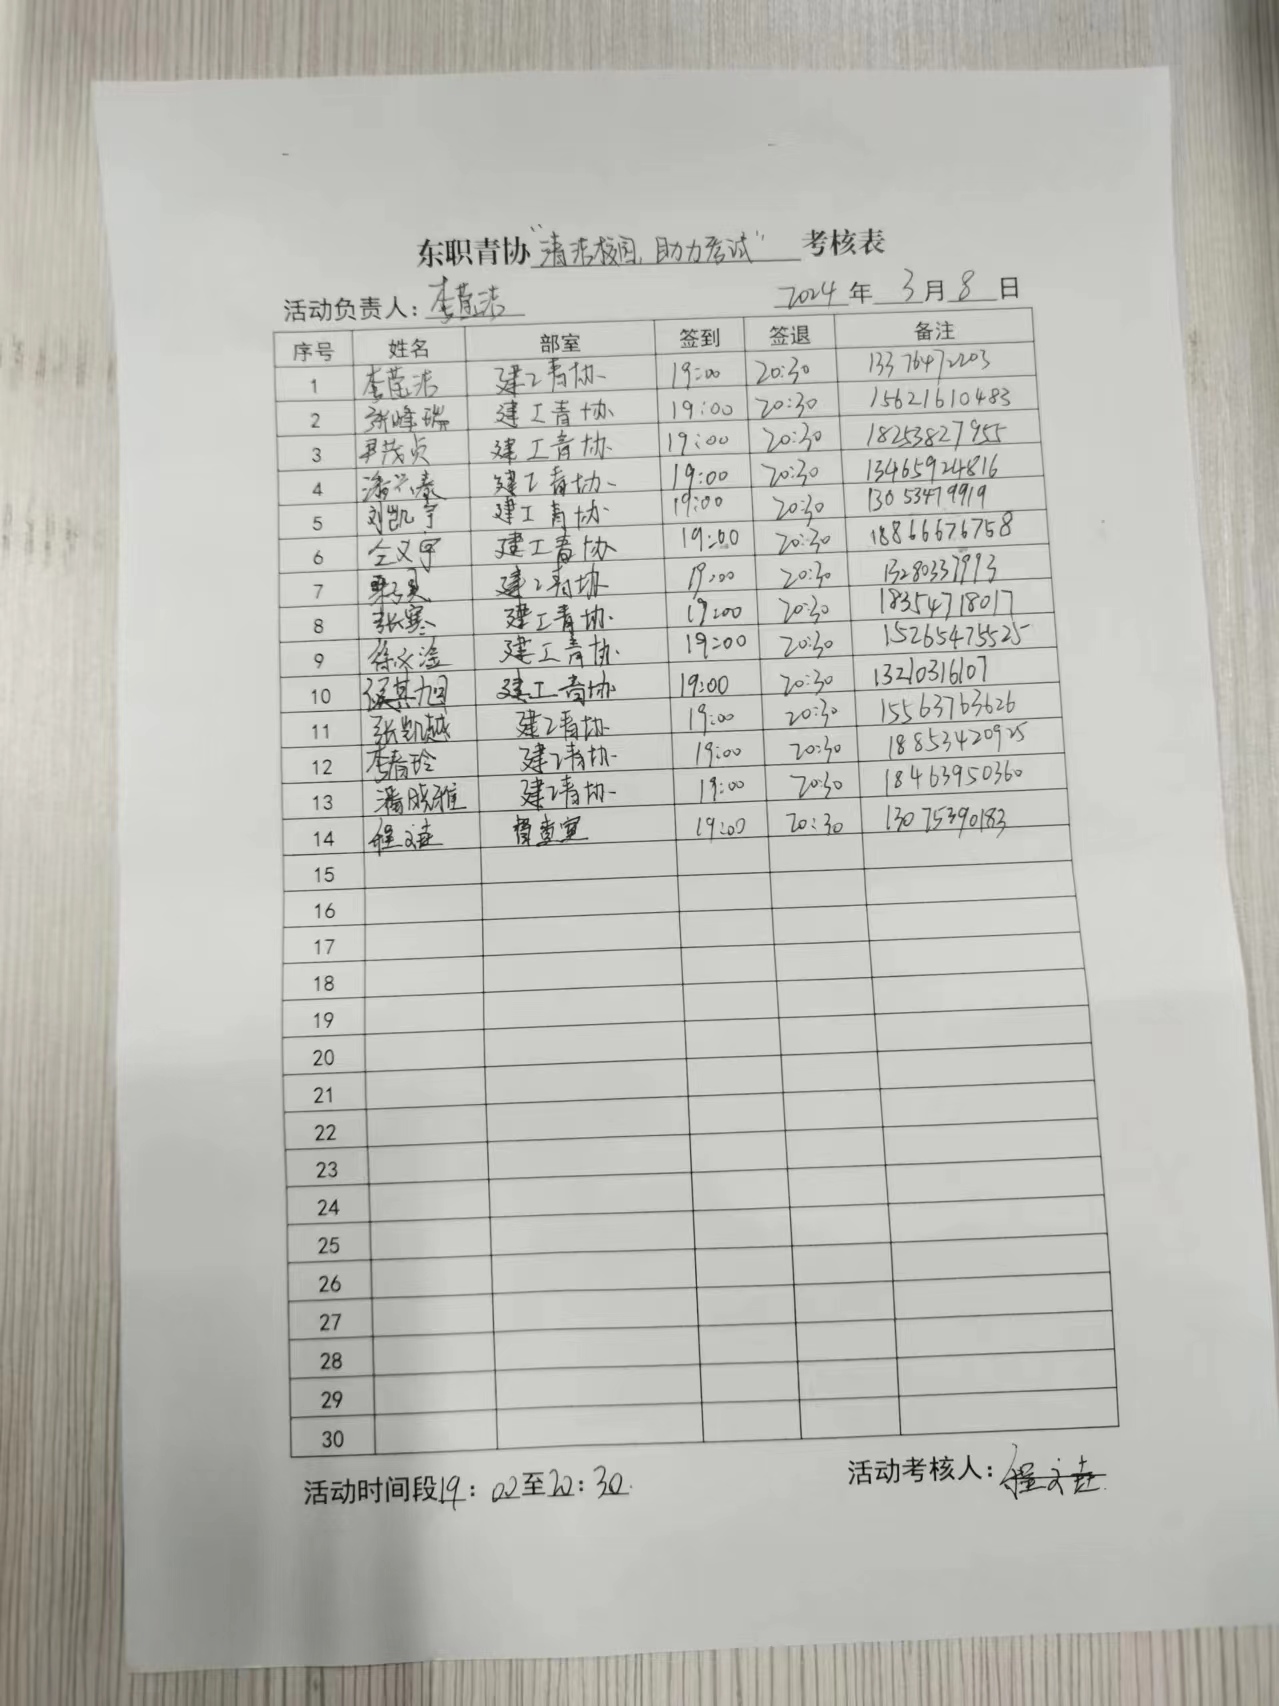 东职青协"清洁校园,助力考试" 考核表
活动负责人: 李莹洁 2024 年 3 月 8 日
序号 姓名 部室 签到 签退 备注
1 李莹洁 建工青协 19:00 20:30 13376472203
2 张峰瑞 建工青协 19:00 20:30 15621610483
3 尹茂贞 建工青协 19:00 20:30 18253827955
4 潘兴春 建工青协 19:00 20:30 13465924816
5 刘凯宇 建工青协 19:00 20:30 13053479919
6 仝义宇 建工青协 19:00 20:30 18866676758
7 建工青协 19:00 20:30 13280337993
8 张寒 建工青协 19:00 20:30 18354718017
9 徐 建工青协 19:00 20:30 15265475525
10 建工青协 19:00 20:30 13210316107
11 张凯越 建工青协 19:00 20:30 15563763626
12 李春玲 建工青协 19:00 20:30 18853420925
13 潘晓雅 建工青协 19:00 20:30 18463950360
14 程文 督查室 19:00 20:30 13075390183
15
16
17
18
19
20
21
22
23
24
25
26
27
28
29
30
活动时间段19:00至20:30 活动考核人: 程文